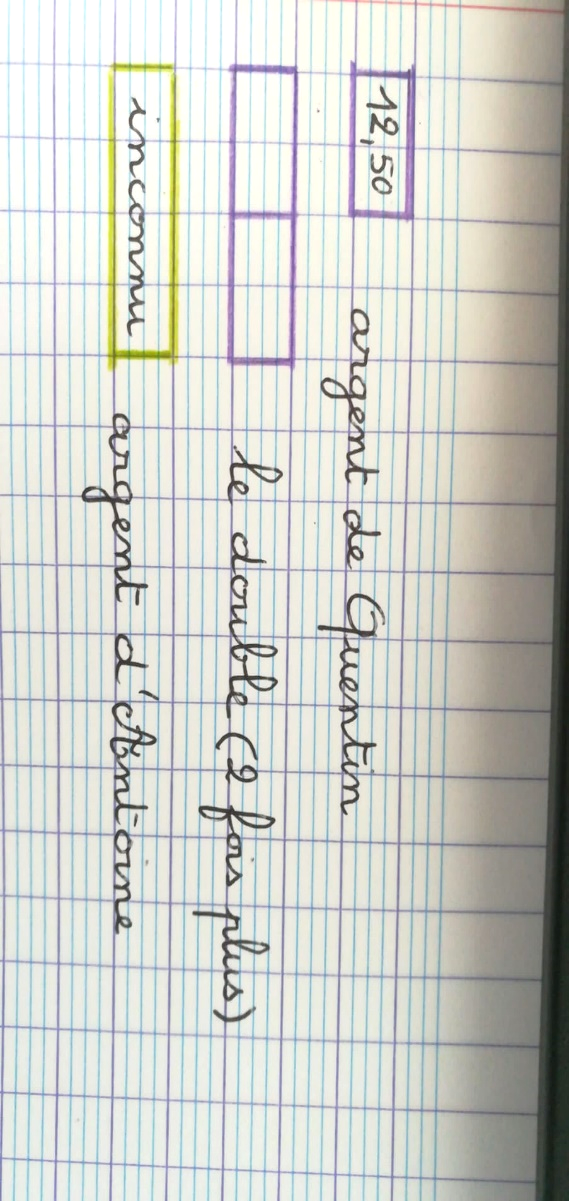 12,50 argent de Quentin
le double (2 fois plus)
inconnu argent d'Antoine